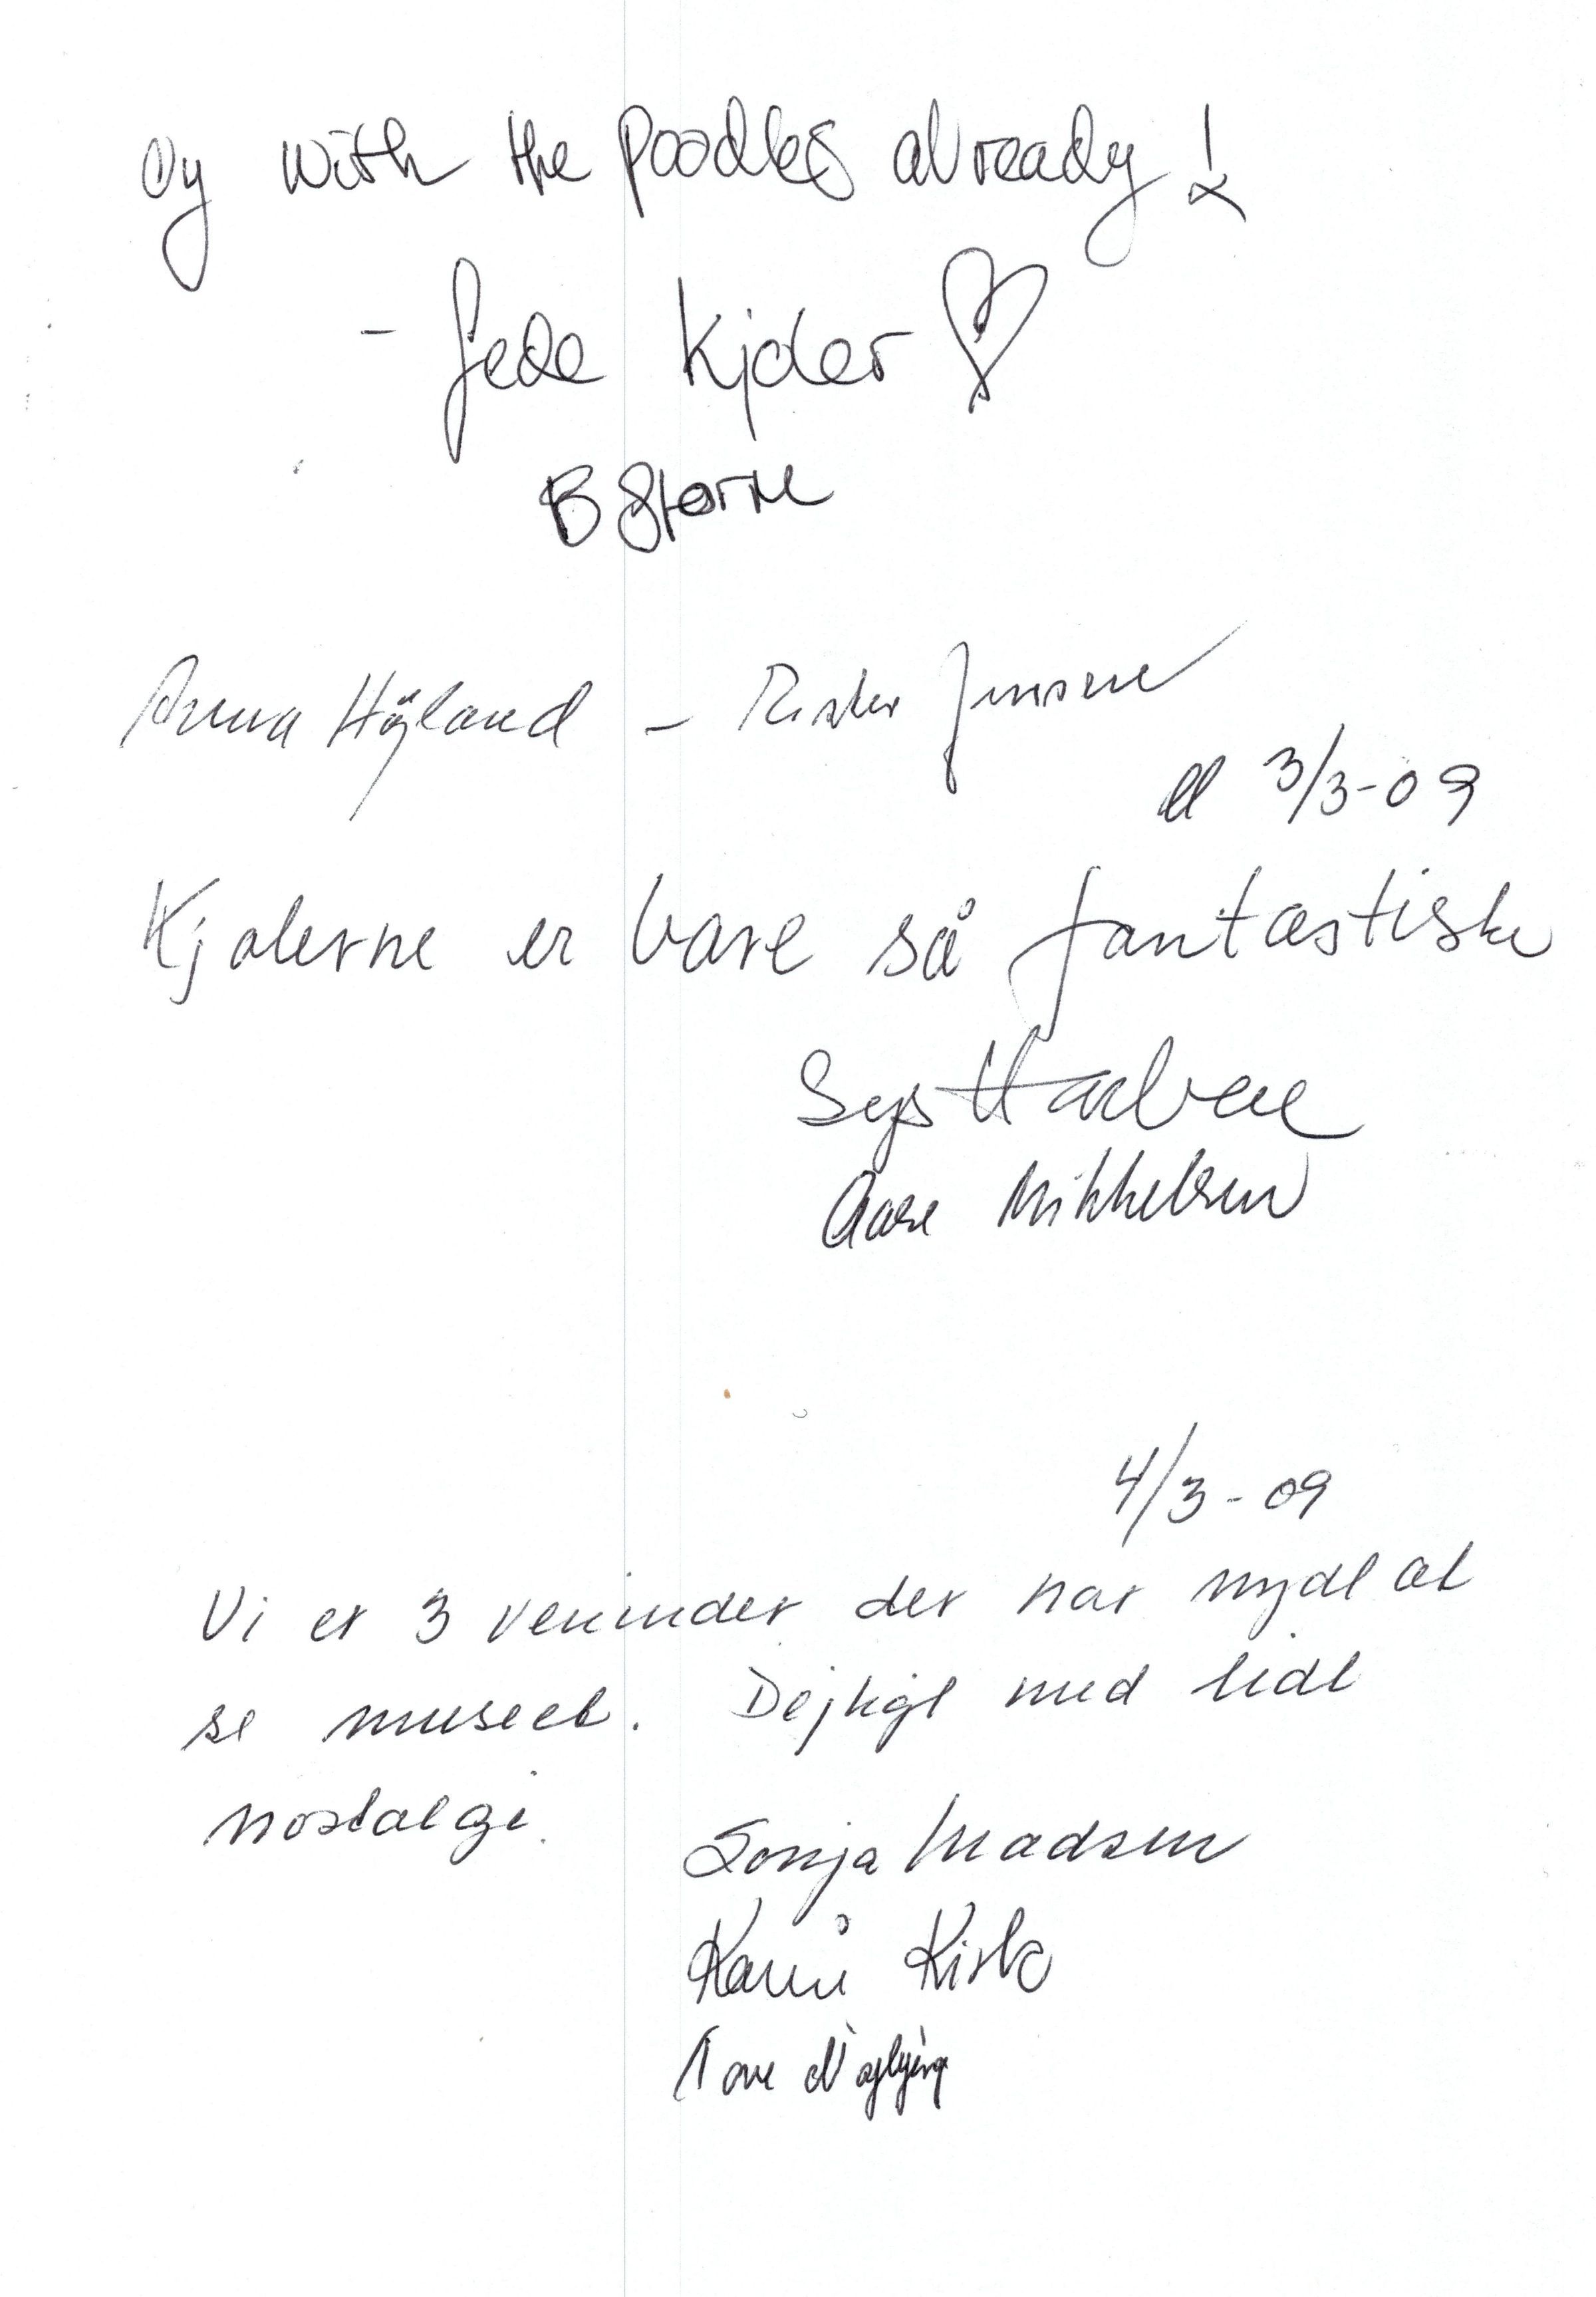 Oy with the poodles already!
- fede kjoler
B Storm
Anna Höjland - Jensen
d 3/3-09
Kjolerne er bare så fantastisk
Sys
Aase Mikkelsen
4/3-09
Vi er 3 veninder der har nydt at
se museet. Dejligt med lidt
nostalgi.
Sonja Madsen
Karin Kirk
Tove